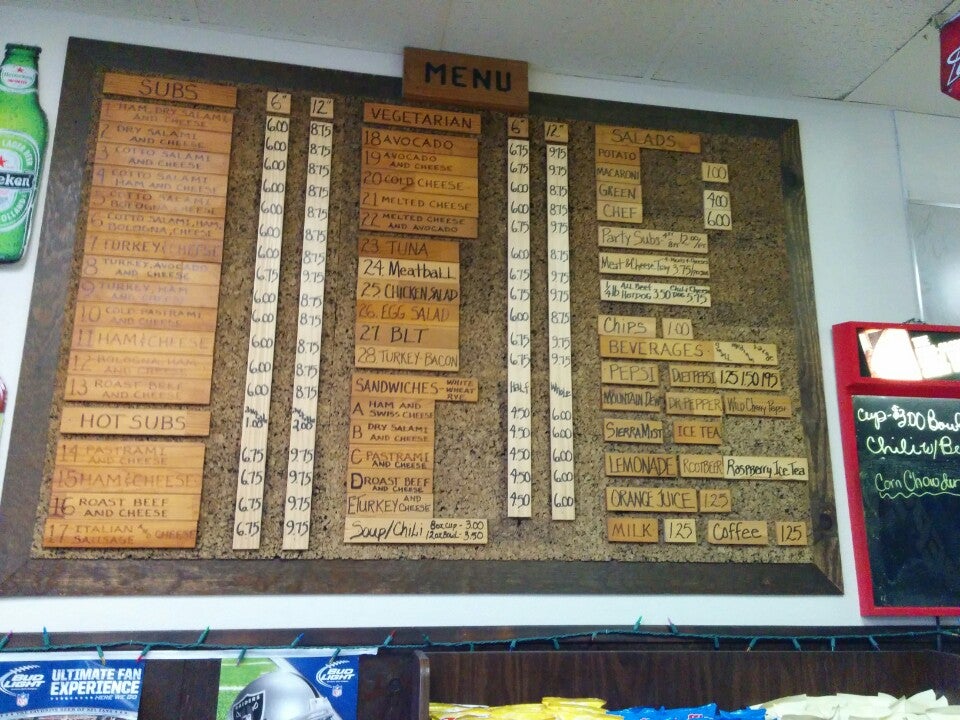 MENU
SUBS 6" 12"
1 HAM, DRY SALAMI
AND CHEESE 6.00 8.75
2 DRY SALAMI
AND CHEESE 6.00 8.75
3 COTTO SALAMI
AND CHEESE 6.00 8.75
4 COTTO SALAMI
HAM AND CHEESE 6.00 8.75
5 COTTO SALAMI
BOLOGNA, CHEESE 6.00 8.75
6 COTTO SALAMI, HAM,
BOLOGNA, CHEESE 6.00 8.75
7 TURKEY/CHEESE 6.00 8.75
8 TURKEY, AVOCADO
AND CHEESE 6.75 9.75
9 TURKEY, HAM
AND CHEESE 6.00 8.75
10 COLD PASTRAMI
AND CHEESE 6.00 8.75
11 HAM/CHEESE 6.00 8.75
12 BOLOGNA, HAM
AND CHEESE 6.00 8.75
13 ROAST BEEF
AND CHEESE 6.00 8.75
HOT SUBS 1.00 2.00
14 PASTRAMI
AND CHEESE 6.75 9.75
15 HAM/CHEESE 6.75 9.75
16 ROAST BEEF
AND CHEESE 6.75 9.75
17 ITALIAN
SAUSAGE AND CHEESE 6.75 9.75
VEGETARIAN 6" 12"
18 AVOCADO 6.75 9.75
19 AVOCADO
AND CHEESE 6.75 9.75
20 COLD CHEESE 6.00
21 MELTED CHEESE 6.00
22 MELTED CHEESE
AND AVOCADO 6.75 9.75
23 TUNA
24 MEATBALL
25 CHICKEN SALAD
26 EGG SALAD
27 BLT
28 TURKEY-BACON
SANDWICHES- WHITE
WHEAT
RYE HALF WHOLE
A HAM AND
SWISS CHEESE 4.50 6.00
B DRY SALAMI
AND CHEESE 4.50 6.00
C PASTRAMI
AND CHEESE 4.50 6.00
D ROAST BEEF
AND CHEESE 4.50 6.00
E TURKEY AND
CHEESE 4.50 6.00
Soup/Chili 8oz Cup - 3.00
12oz Bowl - 3.50
SALADS
POTATO
MACARONI 1.00
GREEN 4.00
CHEF 6.00
Party Subs
Meat & Cheese Tray 3.75/
1/4 lb All Beef
Hotdog 3.50 Chili Cheese
Dog 5.75
CHIPS 1.00
BEVERAGES-
PEPSI DIET PEPSI 1.25 1.50 1.95
MOUNTAIN DEW DR. PEPPER Wild Cherry Pepsi
SIERRA MIST ICE TEA
LEMONADE ROOT BEER Raspberry Ice Tea
ORANGE JUICE 1.25
MILK 1.25 Coffee 1.25
Cup-$3.00
Chili w/
Corn Chowder
BUD LIGHT
ULTIMATE FAN
EXPERIENCE
HERE WE GO
NFL
RAIDERS
BUD LIGHT
NFL